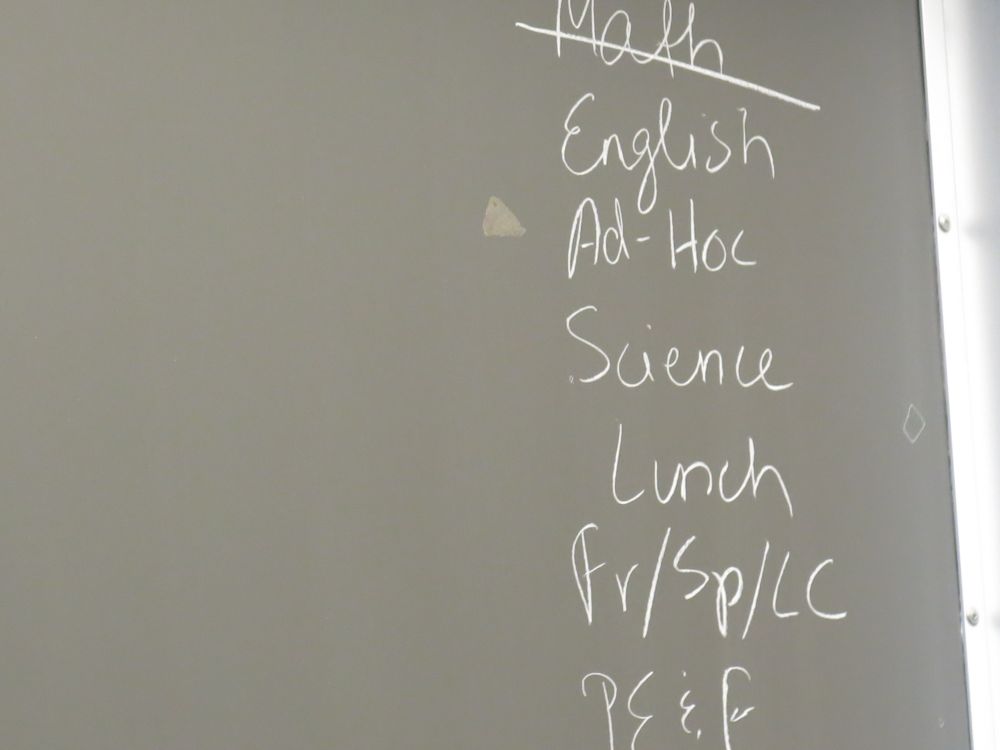 Math
English
Ad-Hoc
Science
Lunch
Fr/Sp/LC
PE &